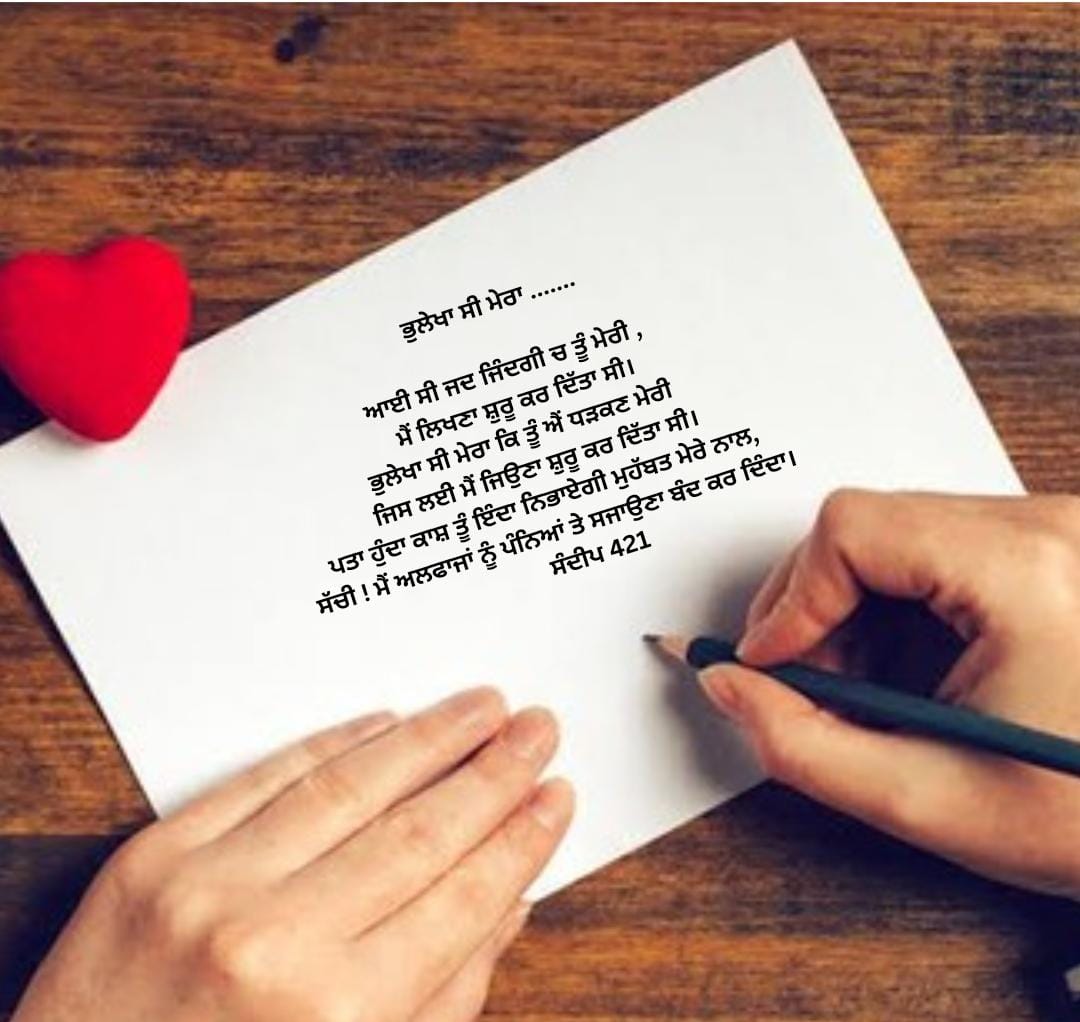 ਭੁਲੇਖਾ ਸੀ ਮੇਰਾ .......
ਆਈ ਸੀ ਜਦ ਜਿੰਦਗੀ ਚ ਤੂੰ ਮੇਰੀ ,
ਮੈਂ ਲਿਖਣਾ ਸ਼ੁਰੂ ਕਰ ਦਿੱਤਾ ਸੀ।
ਭੁਲੇਖਾ ਸੀ ਮੇਰਾ ਕਿ ਤੂੰ ਐਂ ਧੜਕਣ ਮੇਰੀ
ਜਿਸ ਲਈ ਮੈਂ ਜਿਉਣਾ ਸ਼ੁਰੂ ਕਰ ਦਿੱਤਾ ਸੀ।
ਪਤਾ ਹੁੰਦਾ ਕਾਸ਼ ਤੂੰ ਇੰਦਾ ਨਿਭਾਏਗੀ ਮੁਹੱਬਤ ਮੇਰੇ ਨਾਲ,
ਸੱਚੀ ! ਮੈਂ ਅਲਫਾਜਾਂ ਨੂੰ ਪੰਨਿਆਂ ਤੇ ਸਜਾਉਣਾ ਬੰਦ ਕਰ ਦਿੰਦਾ।
ਸੰਦੀਪ 421